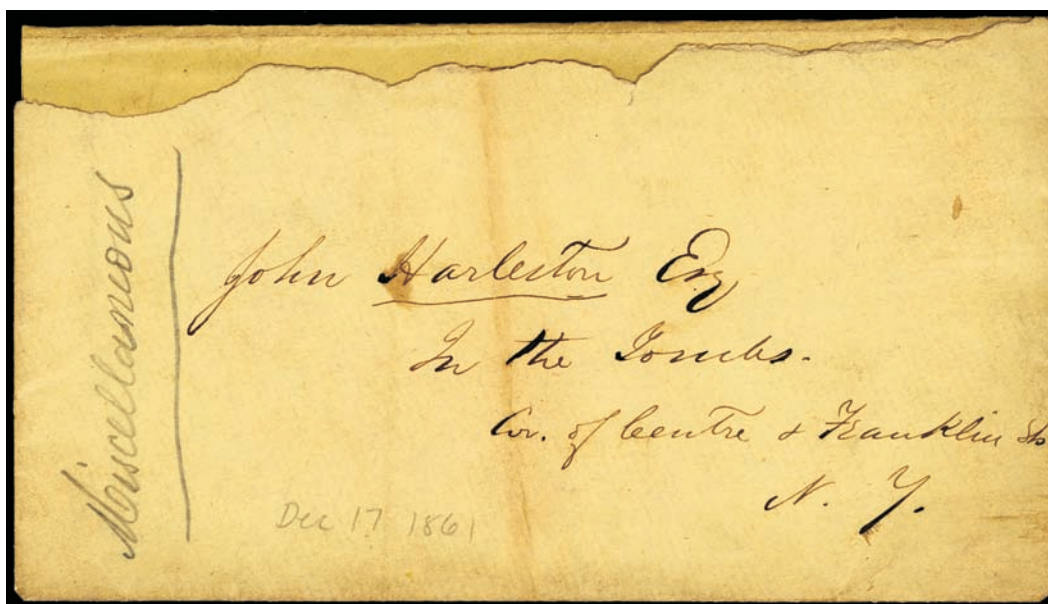 Miscellaneous
John Harleston Esq
In the Tombs.
Cor. of Centre & Franklin Sts
N. Y.
Dec 17 1861